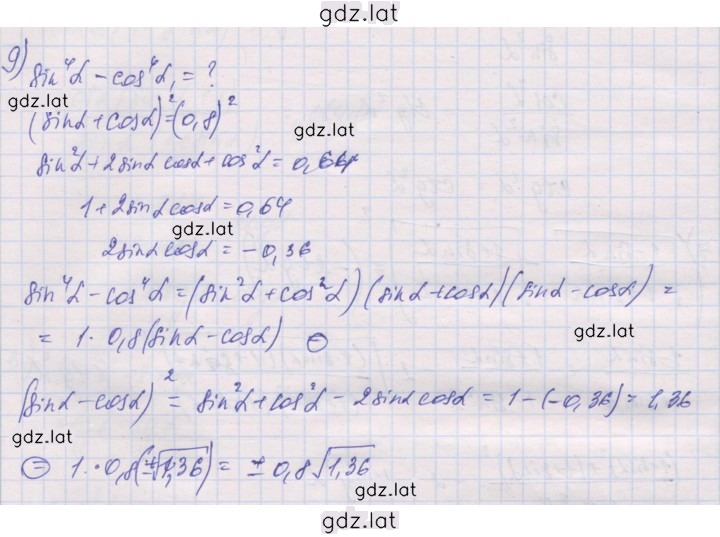 gdz.lat
9)
sin⁴α - cos⁴α, = ?
gdz.lat
(sinα + cosα)² = (0,8)²
gdz.lat
sin²α + 2sinα cosα + cos²α = 0,64
1 + 2sinα cosα = 0,64
gdz.lat
2sinα cosα = -0,36
sin⁴α - cos⁴α = (sin²α + cos²α)(sinα + cosα)(sinα - cosα) =
gdz.lat
= 1 · 0,8(sinα - cosα) ⊜
(sinα - cosα)² = sin²α + cos²α - 2sinα cosα = 1 - (-0,36) = 1,36
gdz.lat
⊜ 1 · 0,8(±√1,36) = ± 0,8√1,36
gdz.lat
gdz.lat